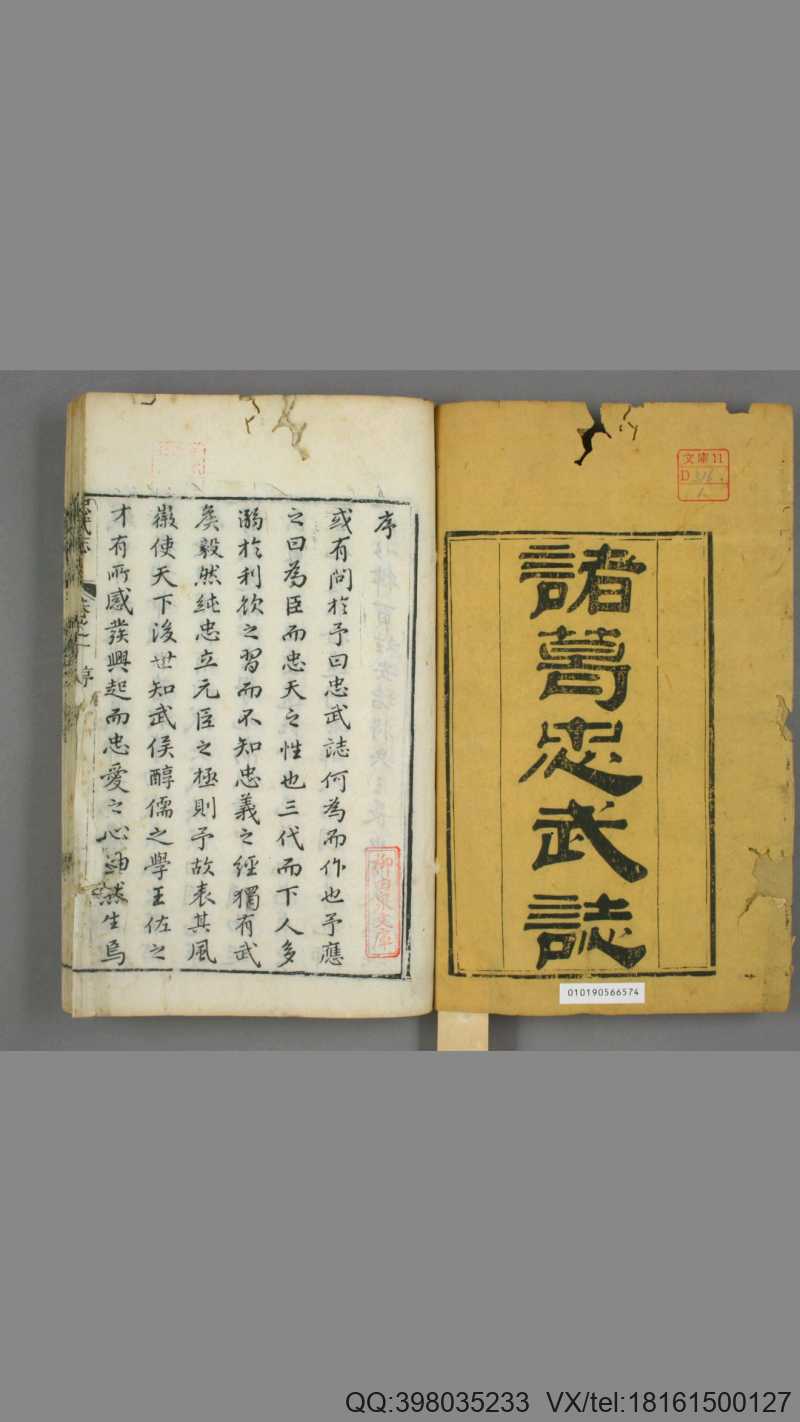 諸葛忠武誌
文庫11
D
010190566574
序
或有問於予曰忠武誌何為而作也予應
之曰為臣而忠天之性也三代而下人多
溺於利欲之習而不知忠義之經獨有武
矦毅然純忠立元臣之極則予故表其風
徽使天下後世知武侯醇儒之學王佐之
才有所感發興起而忠愛之心油然生焉
柳泉文庫
QQ:398035233 VX/tel:18161500127